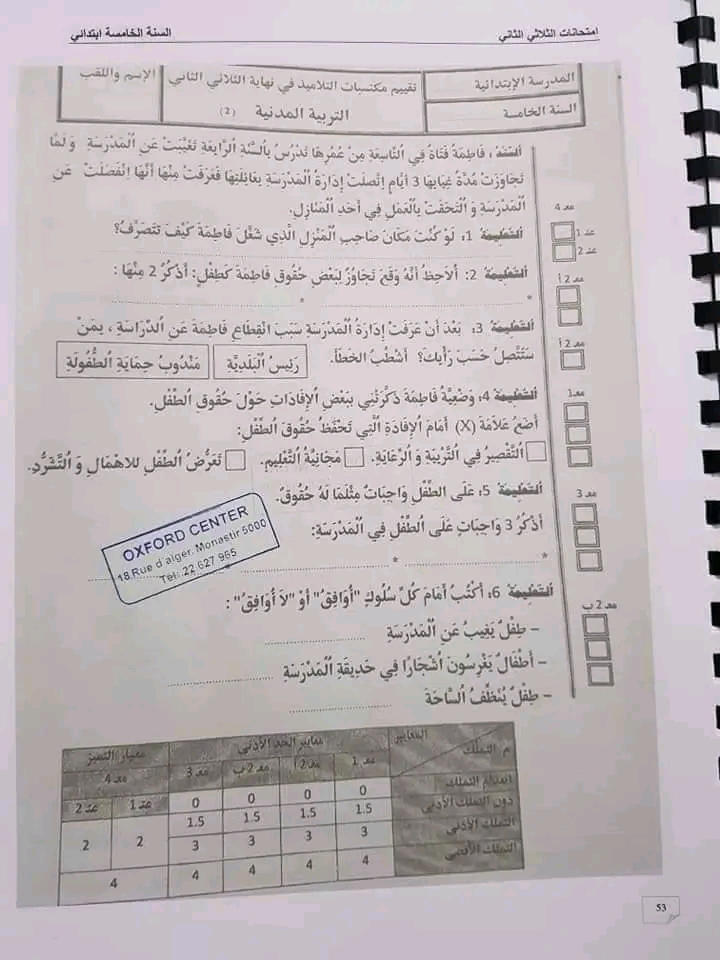 امتحانات الثلاثي الثاني
السنة الخامسة ابتدائي
المدرسة الإبتدائية
السنة الخامسة
تقييم مكتسبات التلاميذ في نهاية الثلاثي الثاني
التربية المدنية (2)
الإسم واللقب
السّند: فَاطِمَةُ فَتَاةٌ فِي التَّاسِعَةِ مِنْ عُمُرِهَا تَدْرُسُ بِالسَّنَةِ الرَّابِعَةِ تَغَيَّبَتْ عَنِ الْمَدْرَسَةِ وَ لَمَّا
تَجَاوَزَتْ مُدَّةُ غِيَابِهَا 3 أَيَّامٍ اِتَّصَلَتْ إِدَارَةُ الْمَدْرَسَةِ بِعَائِلَتِهَا فَعَرَفَتْ مِنْهَا أَنَّهَا اِنْفَصَلَتْ عَنِ
الْمَدْرَسَةِ وَ الْتَحَقَتْ بِالْعَمَلِ فِي أَحَدِ الْمَنَازِلِ.
معـ 4
التعليمة 1: لَوْ كُنْتَ مَكَانَ صَاحِبِ الْمَنْزِلِ الَّذِي شَغَّلَ فَاطِمَةَ كَيْفَ تَتَصَرَّفُ؟
عد 1
عد 2
التعليمة 2: أُلَاحِظُ أَنَّهُ وَقَعَ تَجَاوُزٌ لِبَعْضِ حُقُوقِ فَاطِمَةَ كَطِفْلٍ: أَذْكُرُ 2 مِنْهَا:
معـ 2 أ
* ........................ * ........................
التعليمة 3: بَعْدَ أَنْ عَرَفَتْ إِدَارَةُ الْمَدْرَسَةِ سَبَبَ انْقِطَاعِ فَاطِمَةَ عَنِ الدِّرَاسَةِ، بِمَنْ
معـ 2 أ
سَتَتَّصِلُ حَسَبَ رَأْيِكَ؟ أَشْطُبُ الْخَطَأَ. رَئِيسُ الْبَلَدِيَّةِ مَنْدُوبُ حِمَايَةِ الطُّفُولَةِ
التعليمة 4: وَضْعِيَّةُ فَاطِمَةَ ذَكَّرَتْنِي بِبَعْضِ الْإِفَادَاتِ حَوْلَ حُقُوقِ الطِّفْلِ.
معـ 1
أَضَعُ عَلَامَةَ (X) أَمَامَ الْإِفَادَةِ الَّتِي تَحْفَظُ حُقُوقَ الطِّفْلِ:
التَّقْصِيرُ فِي التَّرْبِيَةِ وَ الرِّعَايَةِ. مَجَانِيَّةُ التَّعْلِيمِ. تَعَرُّضُ الطِّفْلِ لِلاهْمَالِ وَ التَّشَرُّدِ.
التعليمة 5: عَلَى الطِّفْلِ وَاجِبَاتٌ مِثْلَمَا لَهُ حُقُوقٌ.
معـ 3
أَذْكُرُ 3 وَاجِبَاتٍ عَلَى الطِّفْلِ فِي الْمَدْرَسَةِ:
* ........................ * ........................ * ........................
OXFORD CENTER
18 Rue d'alger. Monastir 5000
Tel: 22 627 965
التعليمة 6: أَكْتُبُ أَمَامَ كُلِّ سُلُوكٍ "أُوَافِقُ" أَوْ "لَا أُوَافِقُ":
معـ 2 ب
– طِفْلٌ يَغِيبُ عَنِ الْمَدْرَسَةِ ........................
– أَطْفَالٌ يَغْرِسُونَ أَشْجَارًا فِي حَدِيقَةِ الْمَدْرَسَةِ ........................
– طِفْلٌ يُنَظِّفُ السَّاحَةَ ........................
المعايير معايير الحد الأدنى معيار التميز
م التملك معـ 1 معـ 2 أ معـ 2 ب معـ 3 معـ 4
انعدام التملك 0 0 0 0 عد 1 عد 2
دون التملك الأدنى 1.5 1.5 1.5 1.5
التملك الأدنى 3 3 3 3 2 2
التملك الأقصى 4 4 4 4 4
53